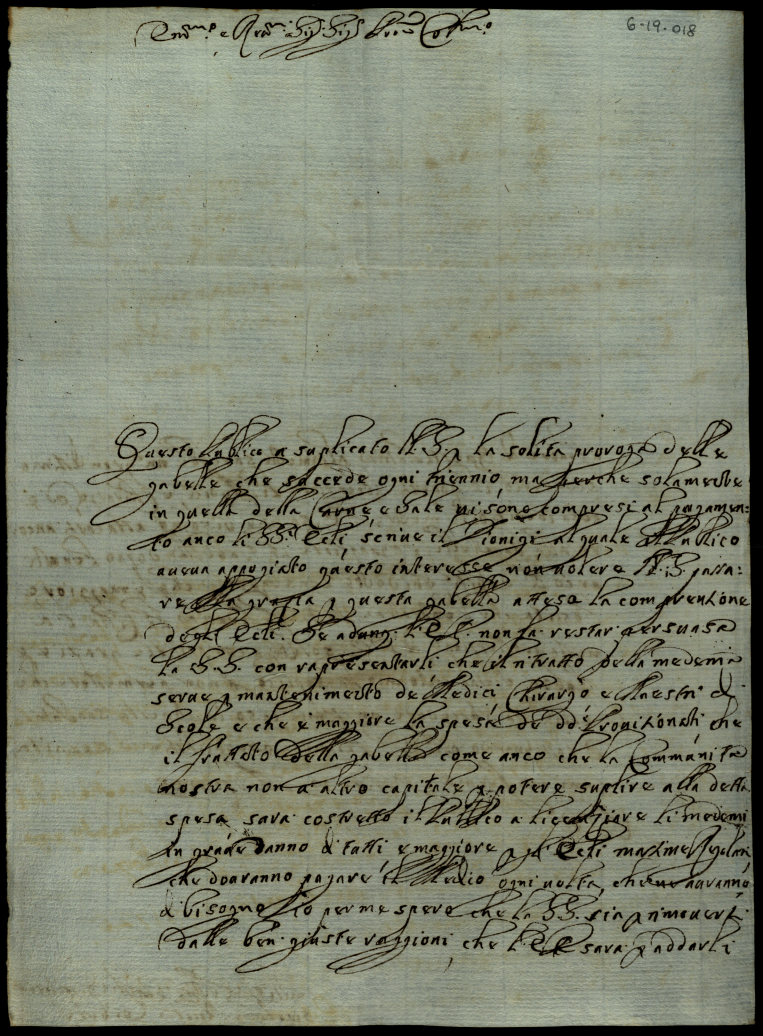 Em.mo e Rev.mo Sig.r Sig.r Pron Col.mo
6-19-018
Questo Publico a suplicato N. S. p la solita proroga delle
gabelle che succede ogni triennio ma perche solamente
in quella della Carne e Sale vi sono compresi al pagamen:
to anco li SS.ri Ecc.ti scriue il Dionigi al quale il Publico
aueua appogiato questo interesse non uolere N. S. passa:
re la gratia p questa gabella attesa la comprenzione
degl Ecc.ti. Se adunq. l'E. V. non fa restar persuasa
la S. S. con rapresentarli che il ritratto della medema
serue p mantenimento de Medici Chirurgo e Maestri di
Scole e che è maggiore la spesa de dd. Prouitionati che
il fruttato della gabella come anco che la Communita
nostra non a altro capitale p potere suplire alla detta
spesa sara costretto il Publico a licentiare li medemi
in graue danno di tutti e maggiore p gl Ecc.ti maxime Regolari
che douranno pagare il Medico ogni uolta che ne auranno
di bisogno Io per me spero che la S. S. sia p rimouersi
dalle ben giuste raggioni che l'E. V. sara p addurli